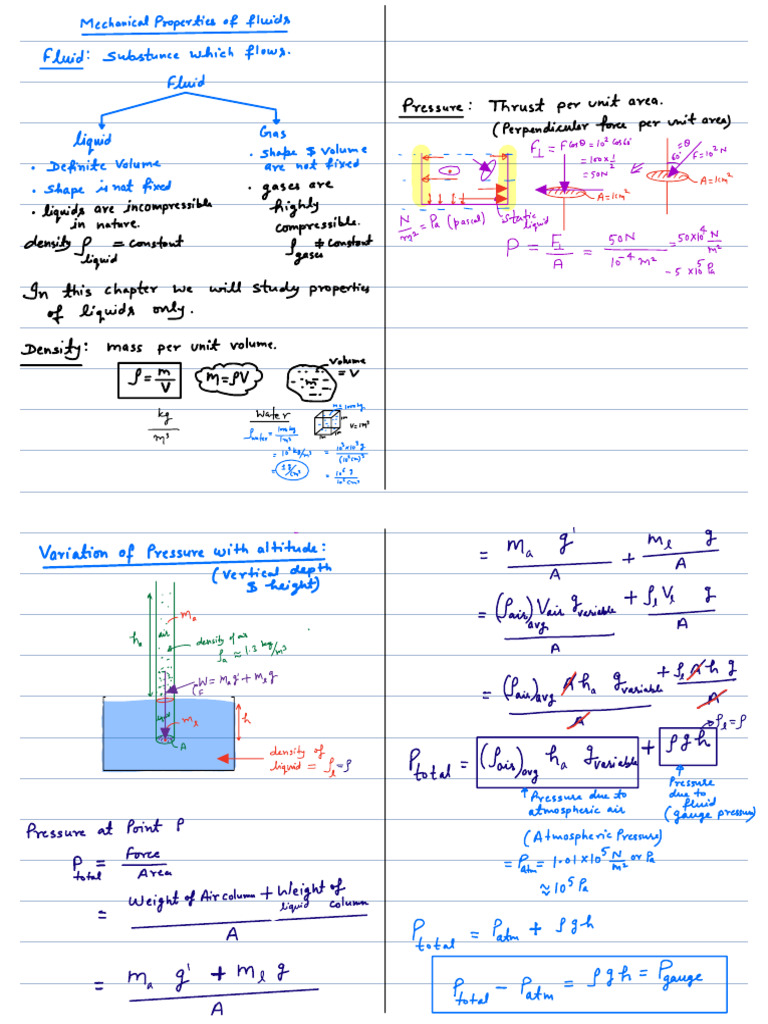 Mechanical Properties of fluids
Fluid: Substance which flows.
Fluid
liquid
• Definite Volume
• Shape is not fixed
• liquids are incompressible
in nature.
density ρliquid = constant
Gas
• Shape & Volume
are not fixed
• gases are
highly
compressible.
ρgases ≠ constant
In this chapter we will study properties
of liquids only.
Density: mass per unit volume.
ρ = m/V
m = ρV
m
Volume
= V
kg/m³
Water
m = 1000kg
V = 1m³
ρwater = 1000kg/1m³
= 10³ kg/m³
= 10³×10³g/(10²cm)³
= 1g/cm³
= 10⁶ g/10⁶ cm³
Pressure: Thrust per unit area.
(Perpendicular force per unit area)
F⊥ = Fcosθ = 10² cos60°
= 100×1/2
= 50N
A=1cm²
=θ
60°
F=10²N
A=1cm²
N/m² = Pa (pascal)
static
liquid
P = F⊥/A = 50N/10⁻⁴ m² = 50×10⁴ N/m²
= 5×10⁵ Pa
Variation of Pressure with altitude:
(vertical depth
& height)
ha
air
ma
density of air
ρa ≈ 1.3 kg/m³
W = mag' + mℓg
mℓ
h
A
density of
liquid = ρℓ = ρ
Pressure at Point P
Ptotal = Force/Area
= Weight of Air column + Weight of liquid column/A
= ma g' + mℓ g/A
= ma g'/A + mℓ g/A
= (ρair)avg Vair gvariable/A + ρℓ Vℓ g/A
= (ρair)avg A ha gvariable/A + ρℓ A h g/A
ρℓ = ρ
Ptotal = (ρair)avg ha gvariable + ρgh
Pressure due to
atmospheric air
(Atmospheric Pressure)
= Patm = 1.01×10⁵ N/m² or Pa
≈ 10⁵ Pa
Pressure
due to
fluid
(gauge pressure)
Ptotal = Patm + ρgh
Ptotal − Patm = ρgh = Pgauge